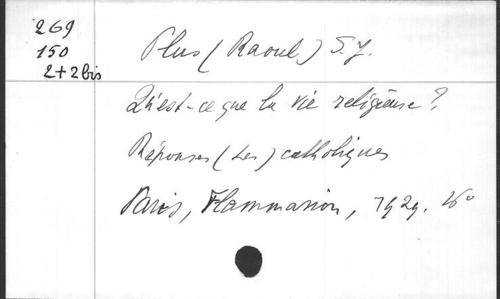 269
150
2+2 bis
Plus (Raoul) S. J.
Qu'est-ce que la vie religieuse ?
Réponses (Les) catholiques
Paris, Flammarion, 1929. 16°